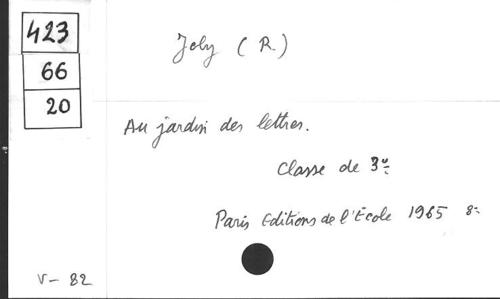 423
66
20
Joly (R.)
Au jardin des lettres.
Classe de 3e
Paris Editions de l'Ecole 1965 8°
V- 82